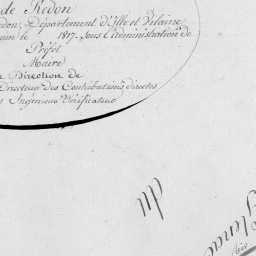 de Redon
don, Département d'Ille et Vilaine
1817. Sous l'Administration de
Préfet
Maire
Direction de
Directeur des Contributions directes
Ingénieur Vérificateur
du